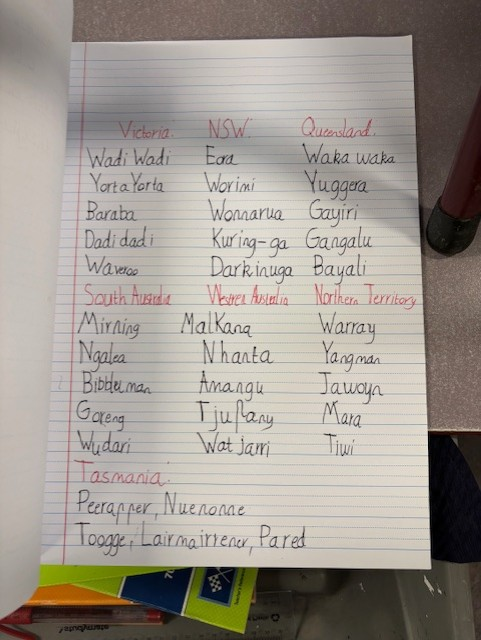 Victoria. NSW. Queensland.
Wadi Wadi Eora Waka waka
Yorta Yorta Worimi Yuggera
Baraba Wonnarua Gayiri
Dadi dadi Kuring-ga Gangalu
Waveroo Darkinuga Bayali
South Australia Western Australia Northern Territory
Mirning Malkana Warray
Ngalea Nhanta Yangman
Bibbelman Anangu Jawoyn
Goreng Mara
Wudari Watjarri Tiwi
Tasmania.
Peerapper, Nuenonne
Toogge, Lairmairrener, Pared